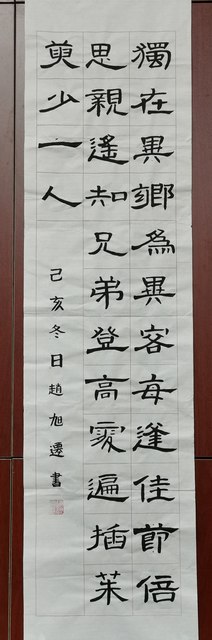 獨在異鄉為異客每逢佳節倍
思親遙知兄弟登高處遍插茱
萸少一人
己亥冬日趙旭遷書